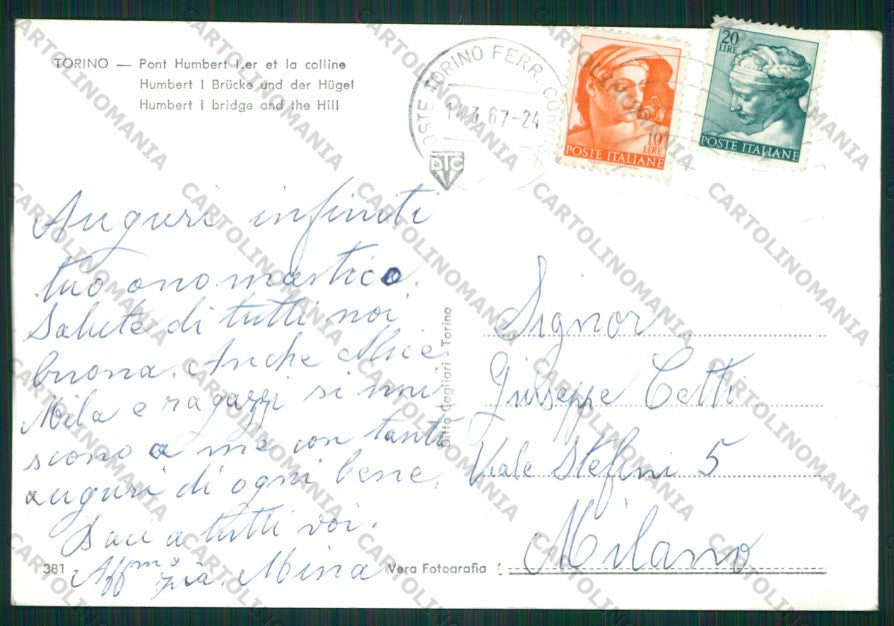 TORINO — Pont Humbert I.er et la colline
Humbert I Brücke und der Hügel
Humbert I bridge and the Hill
POSTE TORINO FERR. COR
3 67-24
10 LIRE
POSTE ITALIANE
20 LIRE
POSTE ITALIANE
Auguri infiniti
tuo onomastico.
Salute di tutti noi
buona. Anche Alice
Mila e ragazzi si uni
scono a me con tanti
auguri di ogni bene.
Baci a tutti voi.
Aff.ma zia Mina
Signor
Giuseppe Cetti
Viale Stefini 5
Milano
Ditta Cagliari - Torino
381
Vera Fotografia
CARTOLINOMANIA